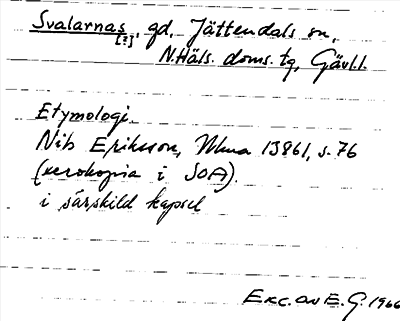 Svalarnas, gd, Jättendals sn,
[?]
N.Häls. doms. tg, Gävl.l.
Etymologi.
Nils Eriksson, Ulma 13861, s. 76
(xerokopia i SOA).
i särskild kapsel
Exc. av E.G. 1966